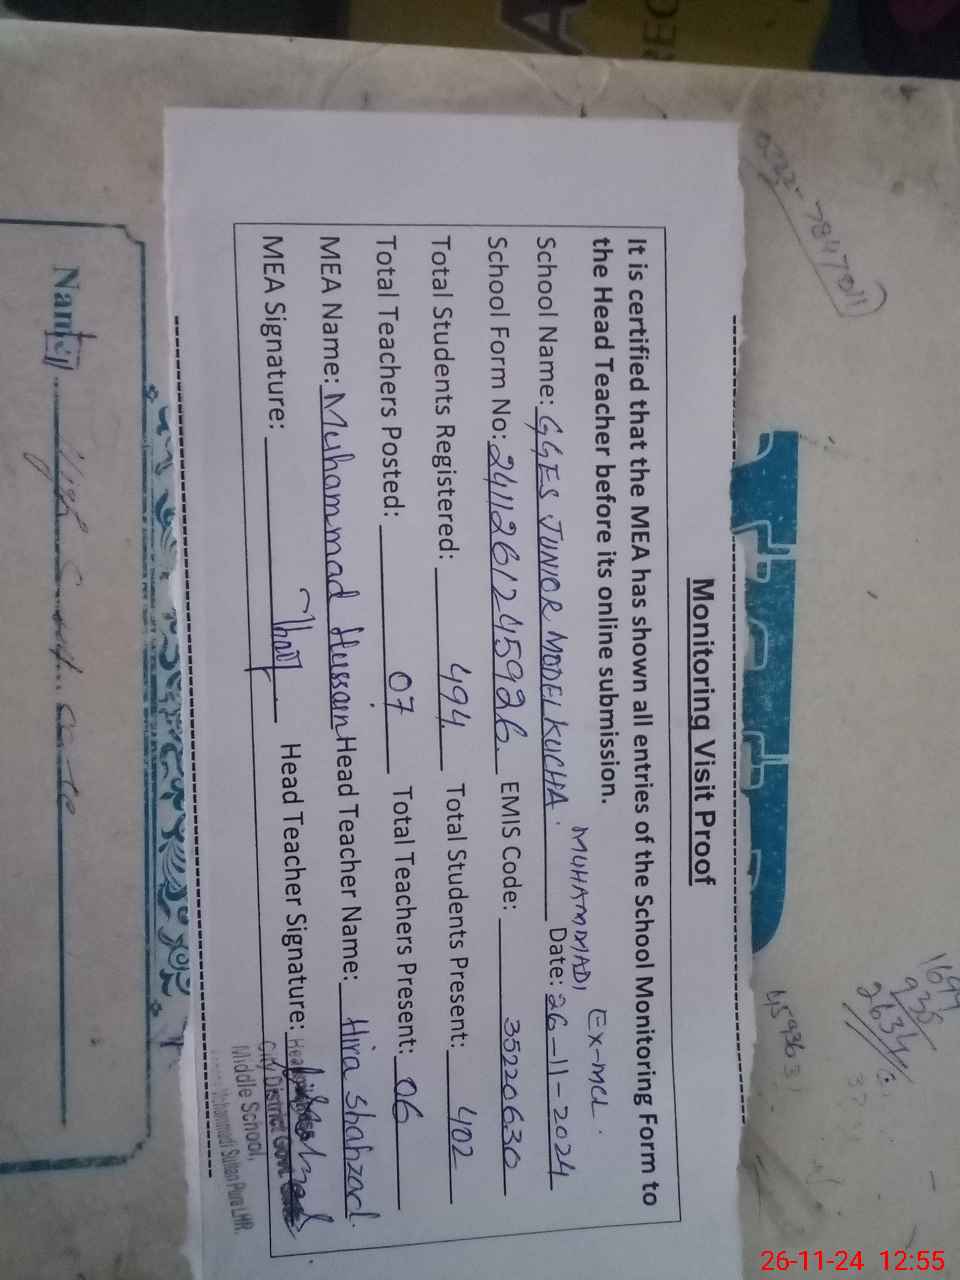 Monitoring Visit Proof
It is certified that the MEA has shown all entries of the School Monitoring Form to
the Head Teacher before its online submission.
MUHAMMADI EX-MCL.
School Name: GGES JUNIOR MODEL KUCHA. Date: 26-11-2024
School Form No: 2411261245926. EMIS Code: 35220630
Total Students Registered: 494 Total Students Present: 402
Total Teachers Posted: 07 Total Teachers Present: 06
MEA Name: Muhammad Hussain Head Teacher Name: Hira Shahzad.
MEA Signature: Head Teacher Signature:
City District Govt
Middle School,
Muhammadi Sultan Pura LHR.
1699
935
2634
45936
Name
26-11-24 12:55